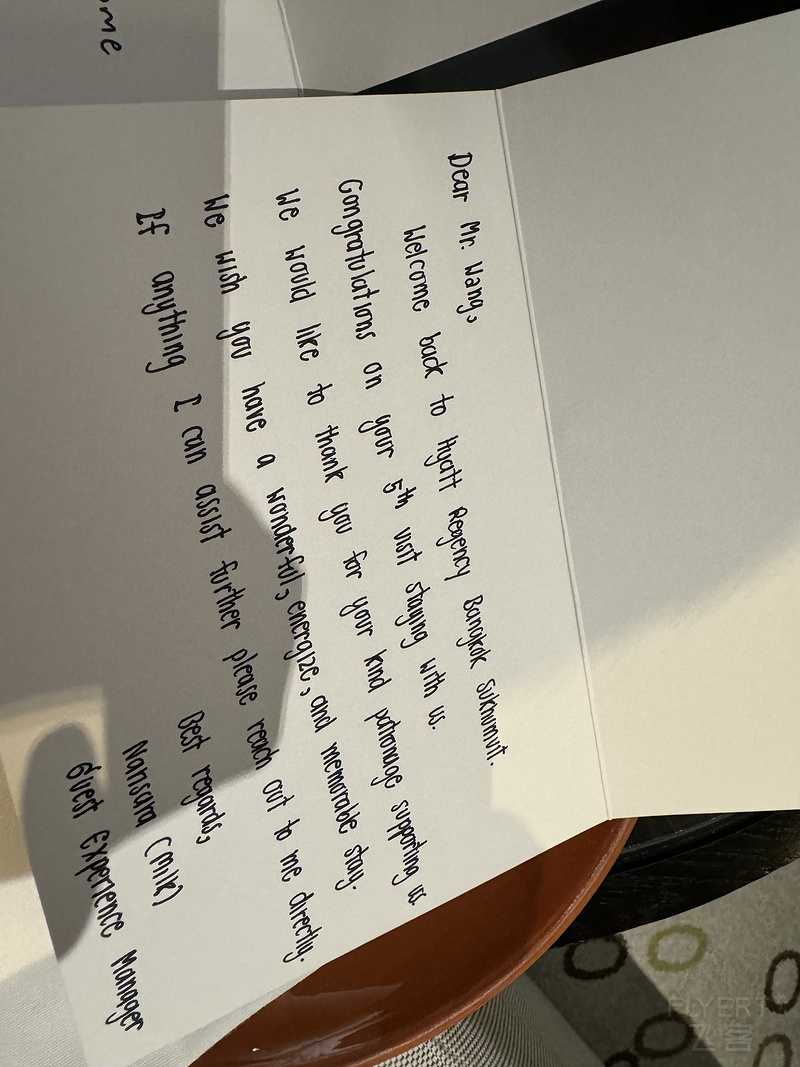 ome
Dear Mr. Wang,
Welcome back to Hyatt Regency Bangkok Sukhumvit.
Congratulations on your 5th visit staying with us.
We would like to thank you for your kind patronage supporting us.
We wish you have a wonderful, energize, and memorable stay.
If anything I can assist further please reach out to me directly.
Best regards,
Nansara (Milk)
Guest Experience Manager
FLYERT
飞客